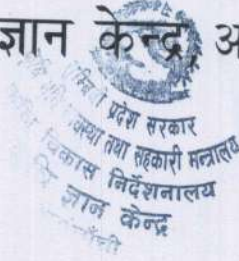 ज्ञान केन्द्र, अ
प्रदेश सरकार
व्यवस्था तथा सहकारी मन्त्रालय
विकास निर्देशनालय
ज्ञान केन्द्र